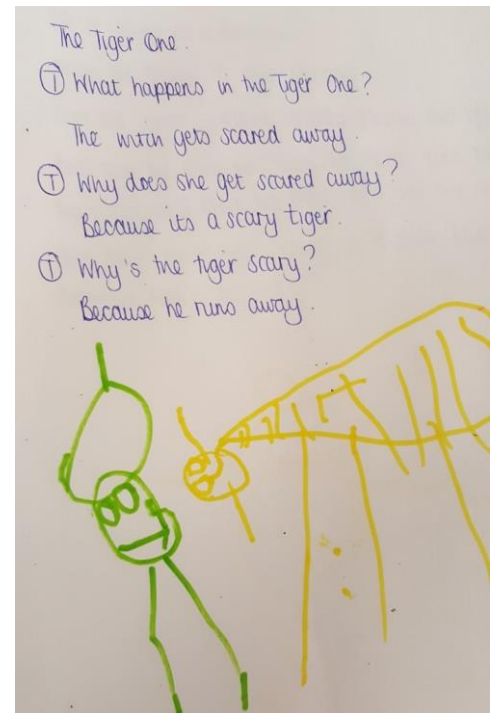 The Tiger One.
Ⓣ What happens in the Tiger One?
The witch gets scared away.
Ⓣ Why does she get scared away?
Because its a scary tiger.
Ⓣ Why's the tiger scary?
Because he runs away.